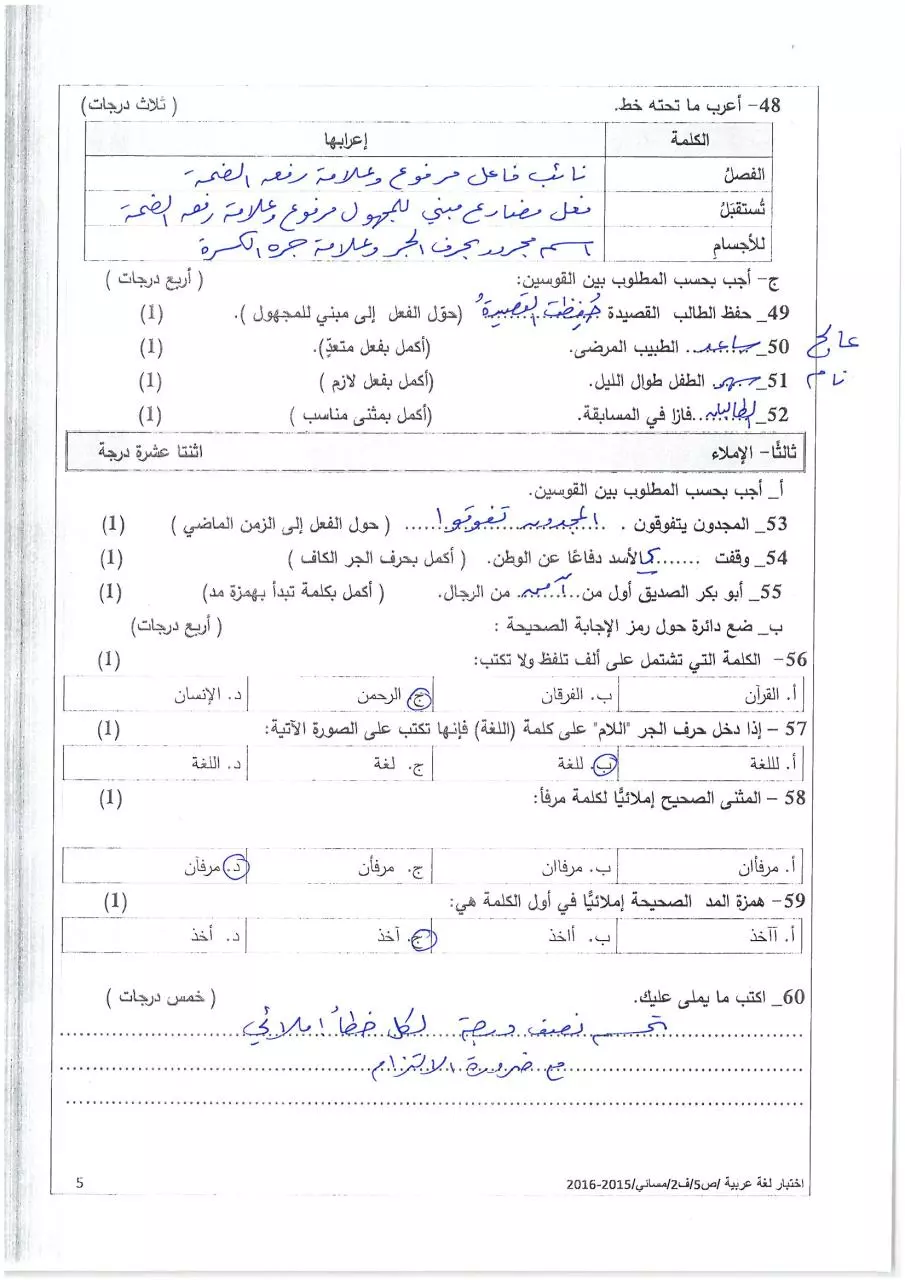 48- أعرب ما تحته خط. ( ثلاث درجات)
الكلمة إعرابها
الفصلُ نائب فاعل مرفوع وعلامة رفعه الضمة
تُستقبَلُ فعل مضارع مبني للمجهول مرفوع وعلامة رفعه الضمة
للأجسامِ اسم مجرور بحرف الجر وعلامة جره الكسرة
ج- أجب بحسب المطلوب بين القوسين: ( أربع درجات )
49_ حفظ الطالب القصيدة حُفِظت القصيدةُ (حوّل الفعل إلى مبني للمجهول ). (1)
50_ ساعد.. الطبيب المرضى. (أكمل بفعل متعدٍّ). (1) عالج
51_ سهر. الطفل طوال الليل. (أكمل بفعل لازم ) (1) نام
52_ الطالبان..فازا في المسابقة. (أكمل بمثنى مناسب ) (1)
ثالثًا- الإملاء اثنتا عشرة درجة
أ_ أجب بحسب المطلوب بين القوسين.
53_ المجدون يتفوقون . المجدون تفوقوا..... ( حول الفعل إلى الزمن الماضي ) (1)
54_ وقفت .......كالأسد دفاعًا عن الوطن. ( أكمل بحرف الجر الكاف ) (1)
55_ أبو بكر الصديق أول من..آمن. من الرجال. ( أكمل بكلمة تبدأ بهمزة مد) (1)
ب_ ضع دائرة حول رمز الإجابة الصحيحة : ( أربع درجات)
56- الكلمة التي تشتمل على ألف تلفظ ولا تكتب: (1)
أ. القرآن ب. الفرقان ج. الرحمن د. الإنسان
57 - إذا دخل حرف الجر "اللام" على كلمة (اللغة) فإنها تكتب على الصورة الآتية: (1)
أ. لللغة ب. للغة ج. لغة د. اللغة
58 - المثنى الصحيح إملائيًّا لكلمة مرفأ: (1)
أ. مرفأان ب. مرفاان ج. مرفأن د. مرفآن
59- همزة المد الصحيحة إملائيًّا في أول الكلمة هي: (1)
أ. آآخذ ب. أاخذ ج. آخذ د. أخذ
60_ اكتب ما يملى عليك. ( خمس درجات )
تحسم نصف درجة لكل خطأ املائي
مع ضرورة الالتزام
اختبار لغة عربية /ص5/ف2/مسائي/2015-2016 5